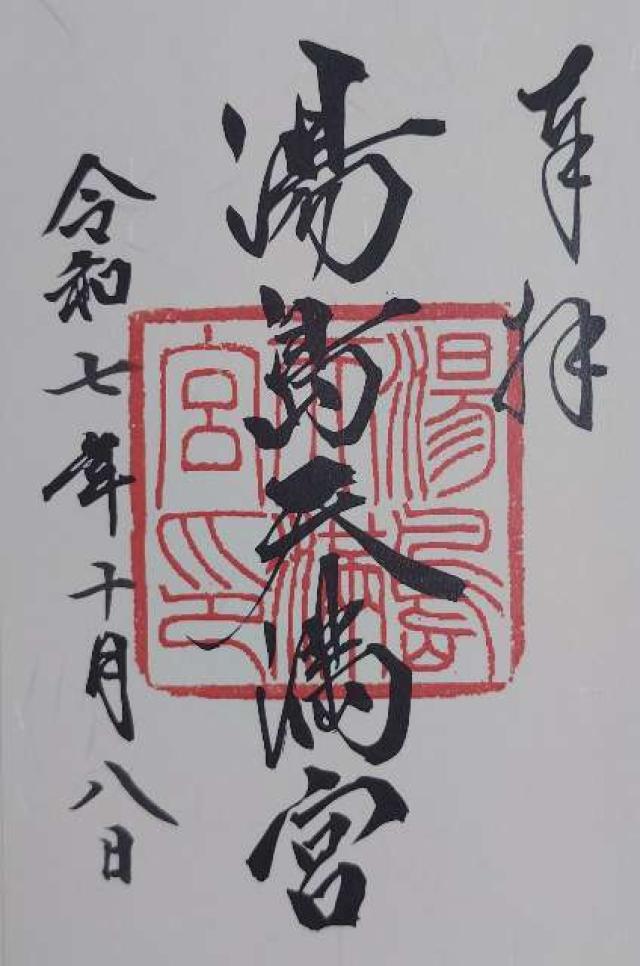 奉拝
湯島天満宮
令和七年十月八日
湯島天満宮印